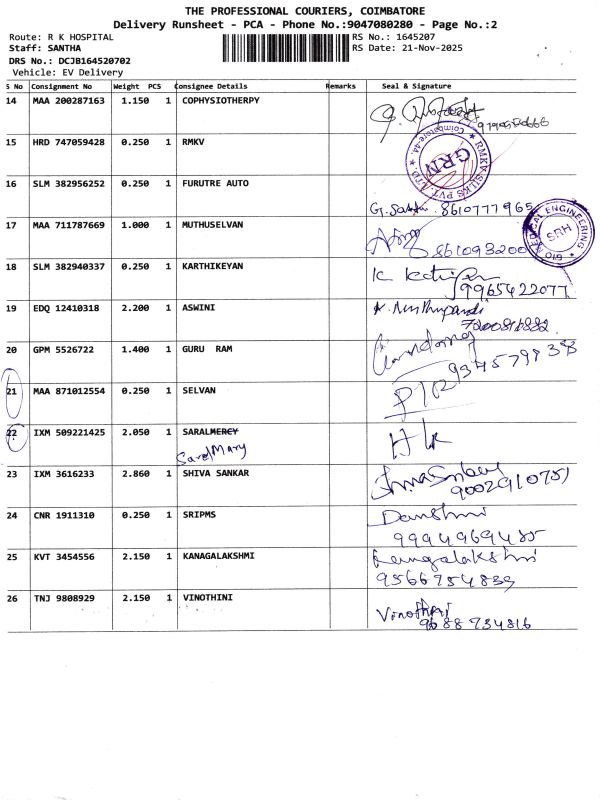 THE PROFESSIONAL COURIERS, COIMBATORE
Delivery Runsheet - PCA - Phone No.:9047080280 - Page No.:2
Route: R K HOSPITAL RS No.: 1645207
Staff: SANTHA RS Date: 21-Nov-2025
DRS No.: DCJB164520702
Vehicle: EV Delivery
S No Consignment No Weight PCS Consignee Details Remarks Seal & Signature
14 MAA 200287163 1.150 1 COPHYSIOTHERPY
15 HRD 747059428 0.250 1 RMKV
RMKV SILKS PVT. LTD. ★ Coimbatore-44. ★
GRN
16 SLM 382956252 0.250 1 FURUTRE AUTO
8610777965
17 MAA 711787669 1.000 1 MUTHUSELVAN
861093200
BIO MEDICAL ENGINEERING ★
SRH
18 SLM 382940337 0.250 1 KARTHIKEYAN
9965422077
19 EDQ 12410318 2.200 1 ASWINI
7200816882
20 GPM 5526722 1.400 1 GURU RAM
9345799838
21 MAA 871012554 0.250 1 SELVAN
22 IXM 509221425 2.050 1 SARALMERCY
Saral Mary
23 IXM 3616233 2.860 1 SHIVA SANKAR
9002910751
24 CNR 1911310 0.250 1 SRIPMS
Danshni
9994969485
25 KVT 3454556 2.150 1 KANAGALAKSHMI
9566754839
26 TNJ 9808929 2.150 1 VINOTHINI
Vinothini
9688734816